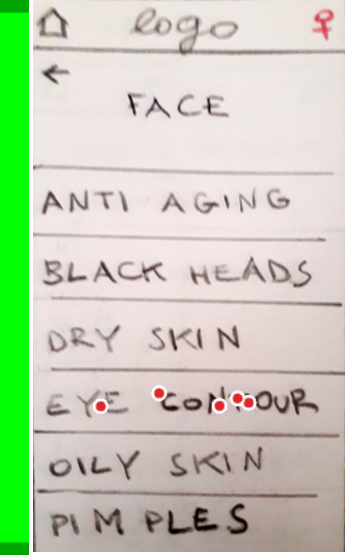 logo
FACE
ANTI AGING
BLACK HEADS
DRY SKIN
EYE CONTOUR
OILY SKIN
PIMPLES